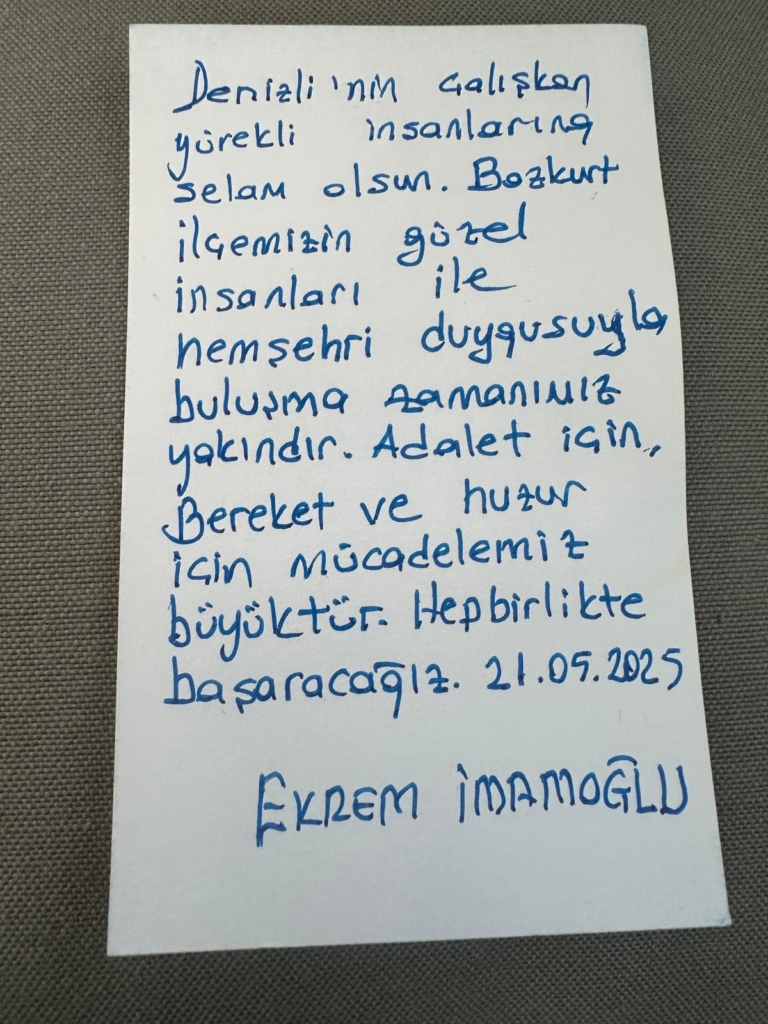 Denizli'nin çalışkan
yürekli insanlarına
selam olsun. Bozkurt
ilçemizin güzel
insanları ile
hemşehri duygusuyla
buluşma zamanımız
yakındır. Adalet için,
Bereket ve huzur
için mücadelemiz
büyüktür. Hepbirlikte
başaracağız. 21.05.2025
EKREM İMAMOĞLU